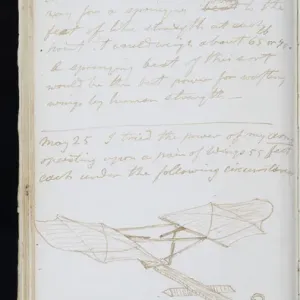 for a springing
feet of the strength at each
point. It would weigh about 65 or 70.
A springing beat of this sort
would be the best power for working
wings by human strength —
May 25 I tried the power of my arms
operating upon a pair of Wings 5½ feet
each under the following circumstances